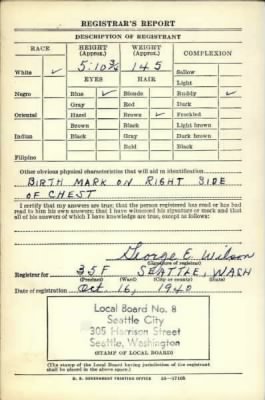 REGISTRAR'S REPORT
DESCRIPTION OF REGISTRANT
RACE HEIGHT (Approx.) WEIGHT (Approx.) COMPLEXION
White ✓ 5:10 3/4 145 Sallow
EYES HAIR Light
Negro Blue ✓ Blonde Ruddy ✓
Gray Red Dark
Oriental Hazel Brown ✓ Freckled
Brown Black Light brown
Indian Black Gray Dark brown
Bald Black
Filipino
Other obvious physical characteristics that will aid in identification
BIRTH MARK ON RIGHT SIDE
OF CHEST
I certify that my answers are true; that the person registered has read or has had
read to him his own answers; that I have witnessed his signature or mark and that
all of his answers of which I have knowledge are true, except as follows:
George E. Wilson
(Signature of registrar)
Registrar for 35F SEATTLE, WASH
(Precinct) (Ward) (City or county) (State)
Date of registration Oct 16, 1940
Local Board No. 8
Seattle City
305 Harrison Street
Seattle, Washington
(STAMP OF LOCAL BOARD)
(The stamp of the Local Board having jurisdiction of the registrant
shall be placed in the above space.)
U. S. GOVERNMENT PRINTING OFFICE 16—17105